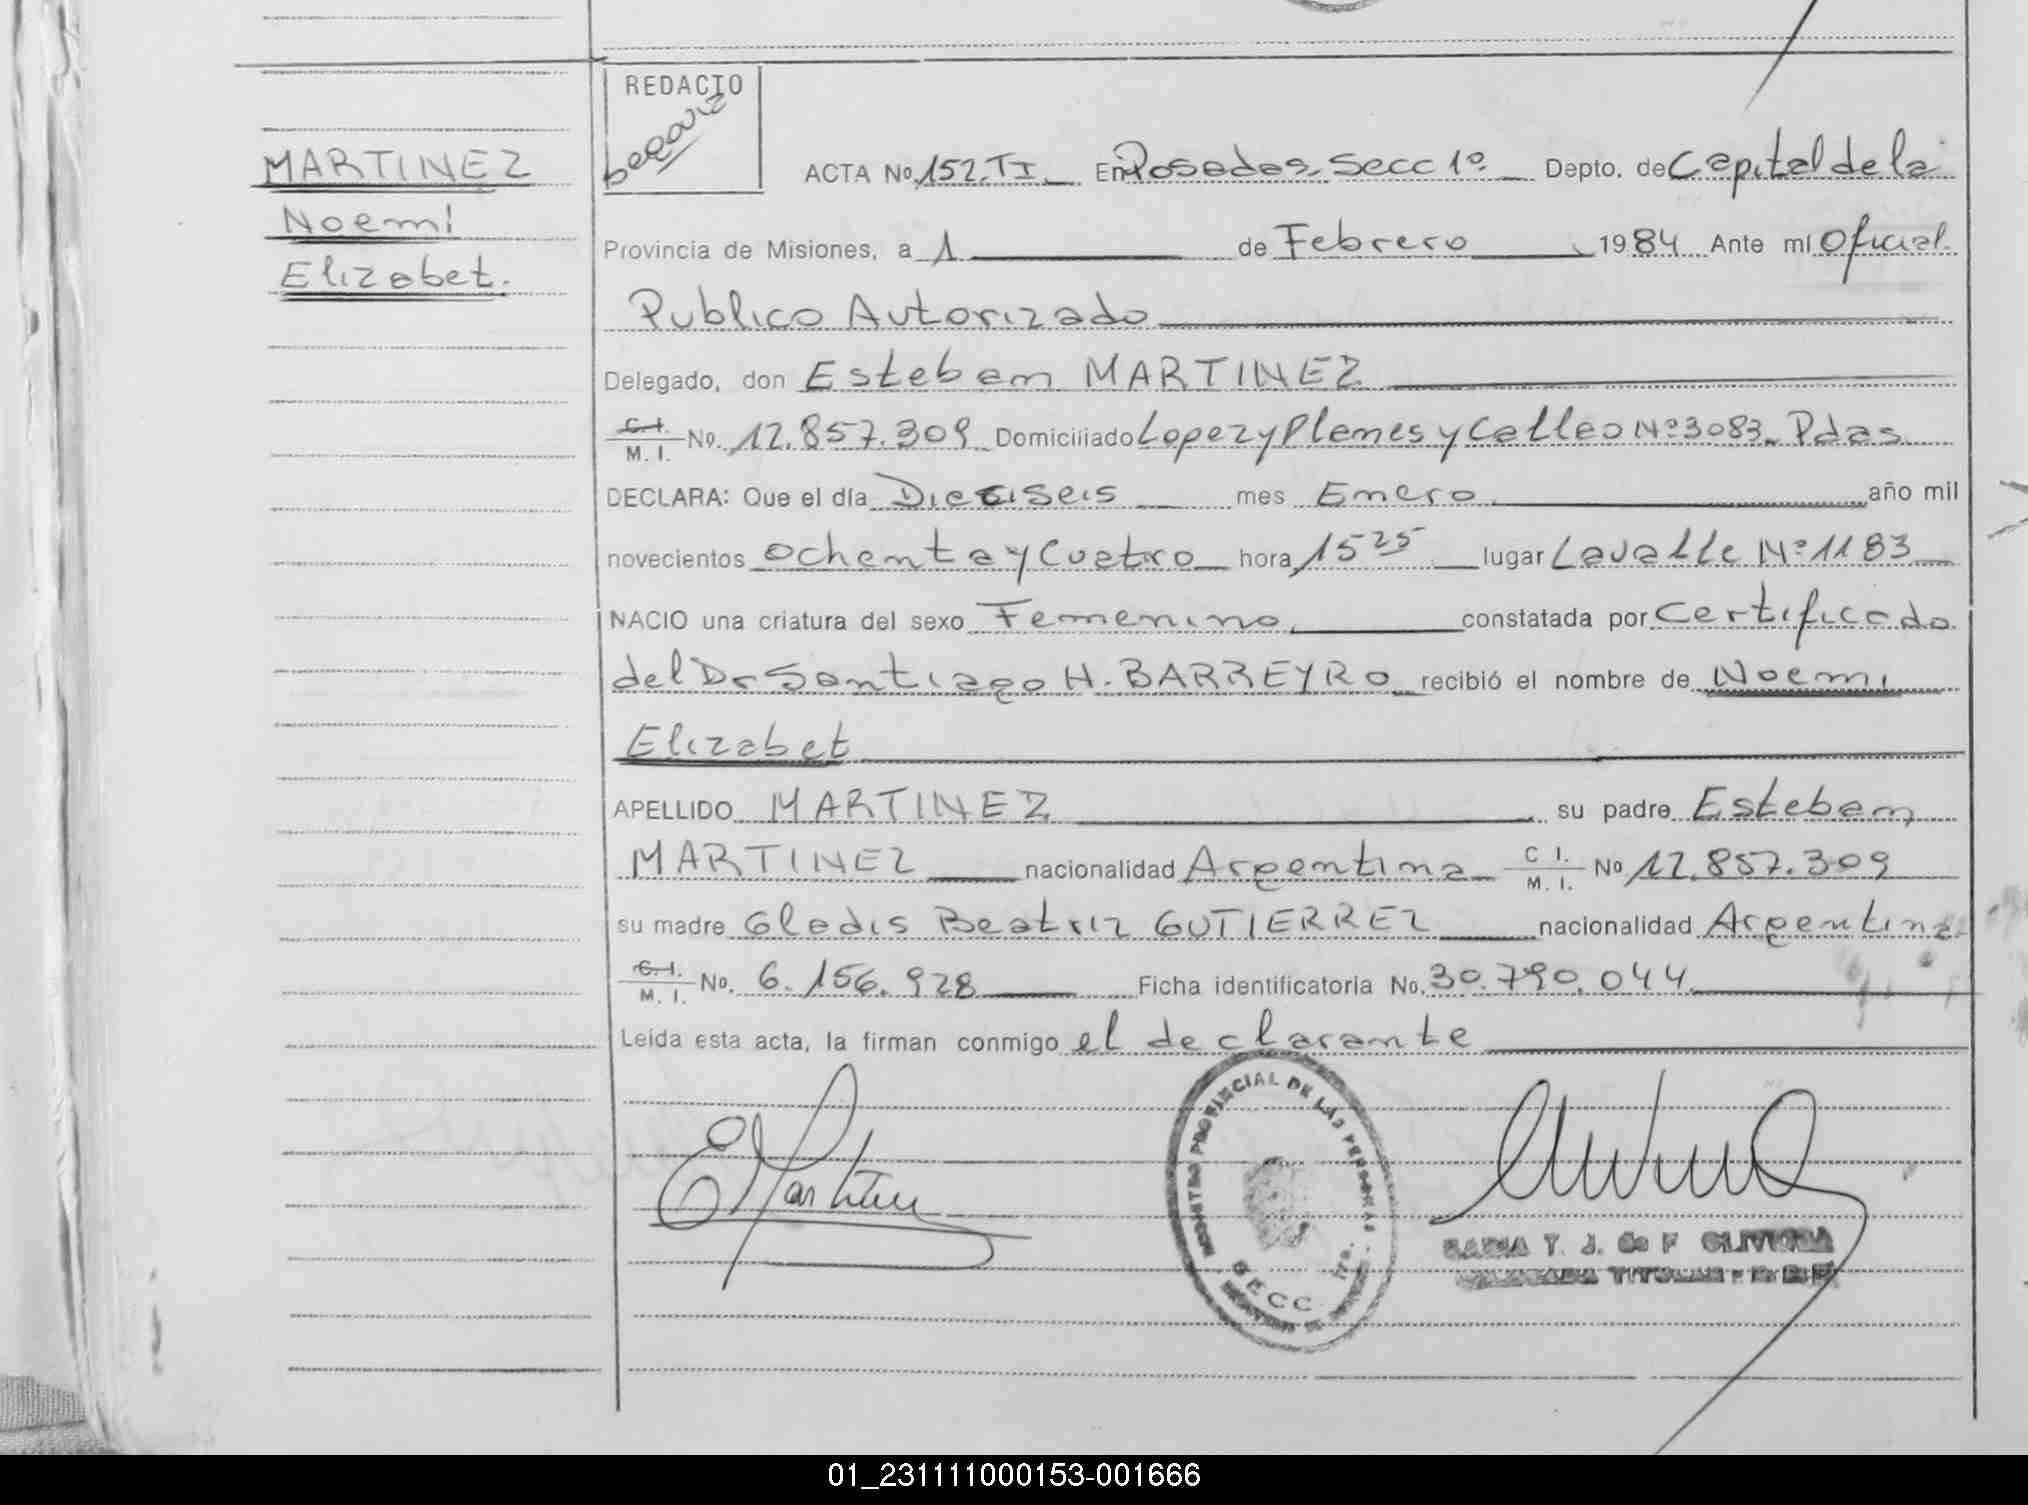 MARTINEZ
Noemi
Elizabet.
REDACTO
ACTA No. 152. TI. En Posadas. Secc 1º Depto. de Capital de la
Provincia de Misiones, a 1 de Febrero 1984 Ante mí Oficial.
Publico Autorizado
Delegado, don Esteban MARTINEZ
C. I.
M. I. No. 12.857.309 Domiciliado Lopez y Planes y Callao Nº 3083. Pdas.
DECLARA: Que el día Dieciseis mes Enero. año mil
novecientos Ochenta y Cuatro hora 15 25 lugar Lavalle Nº 1183
NACIO una criatura del sexo Femenino. constatada por Certificado
del Dr Santiago H. BARREYRO recibió el nombre de Noemi
Elizabet
APELLIDO MARTINEZ su padre Esteban
MARTINEZ nacionalidad Argentina C I.
M. I. No 12.857.309
su madre Gladis Beatriz GUTIERREZ nacionalidad Argentina
C. I.
M. I. No. 6.156.928 Ficha identificatoria No. 30.790.044
Leída esta acta, la firman conmigo el declarante
E Martinez
REGISTRO PROVINCIAL DE LAS PERSONAS
SECC. 1ra.
T. J. de F OLIVEIRA
TITULAR
01_231111000153-001666